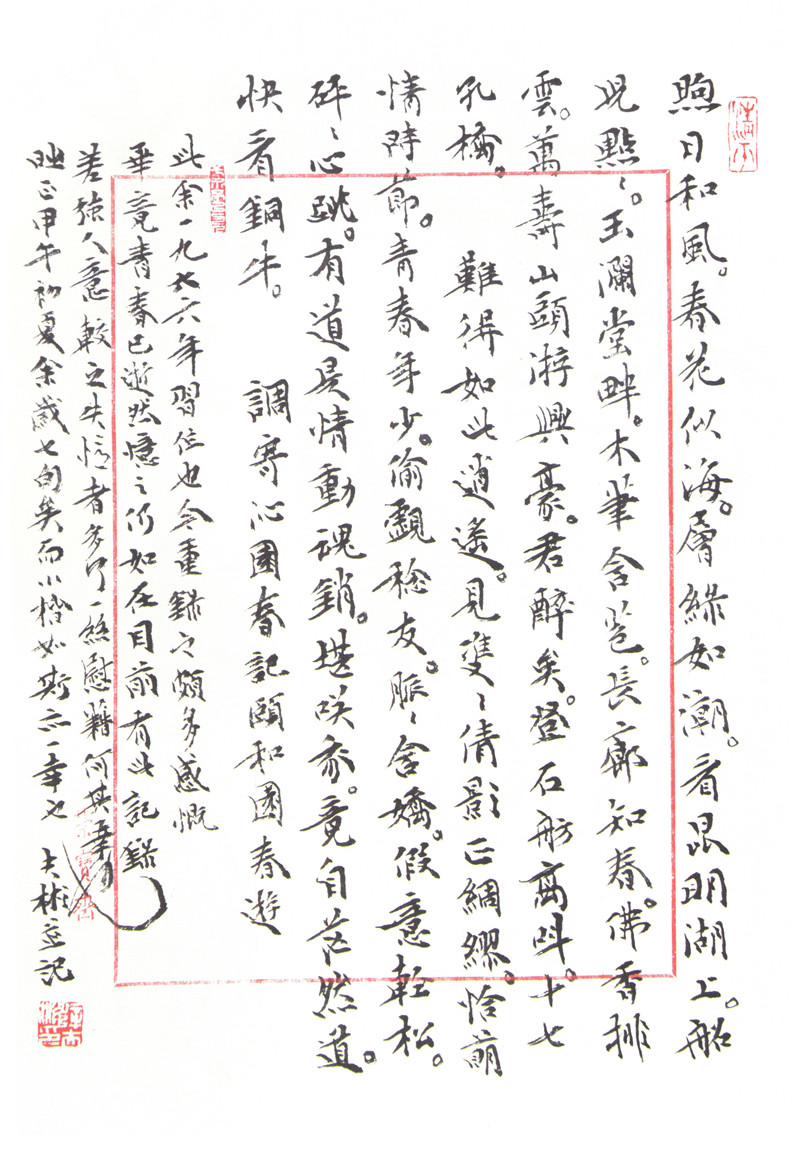 煦日和風。春花似海。層綠如潮。看昆明湖上。船
兒點點。玉瀾堂畔。木筆含苞。長廊知春。佛香排
雲。萬壽山頭游興豪。君醉矣。登石舫高叫。十七
孔橋。
難得如此逍遙。見雙雙倩影正綢繆。恰萌
情時節。青春年少。偷覷稔友。脈脈含嬌。假意輕松。
砰砰心跳。有道是情動魂銷。堪咲我。竟自茫然道。
快看銅牛。
調寄沁園春記頤和園春遊
此余一九七六年習作也今重錄之頗多感慨
畢竟青春已逝然憶之仍如在目前有此記錄
差強人意較之失憶者多了一絲慰藉何其幸
甲午初夏余歲七旬矣而小楷如斯亦一幸也